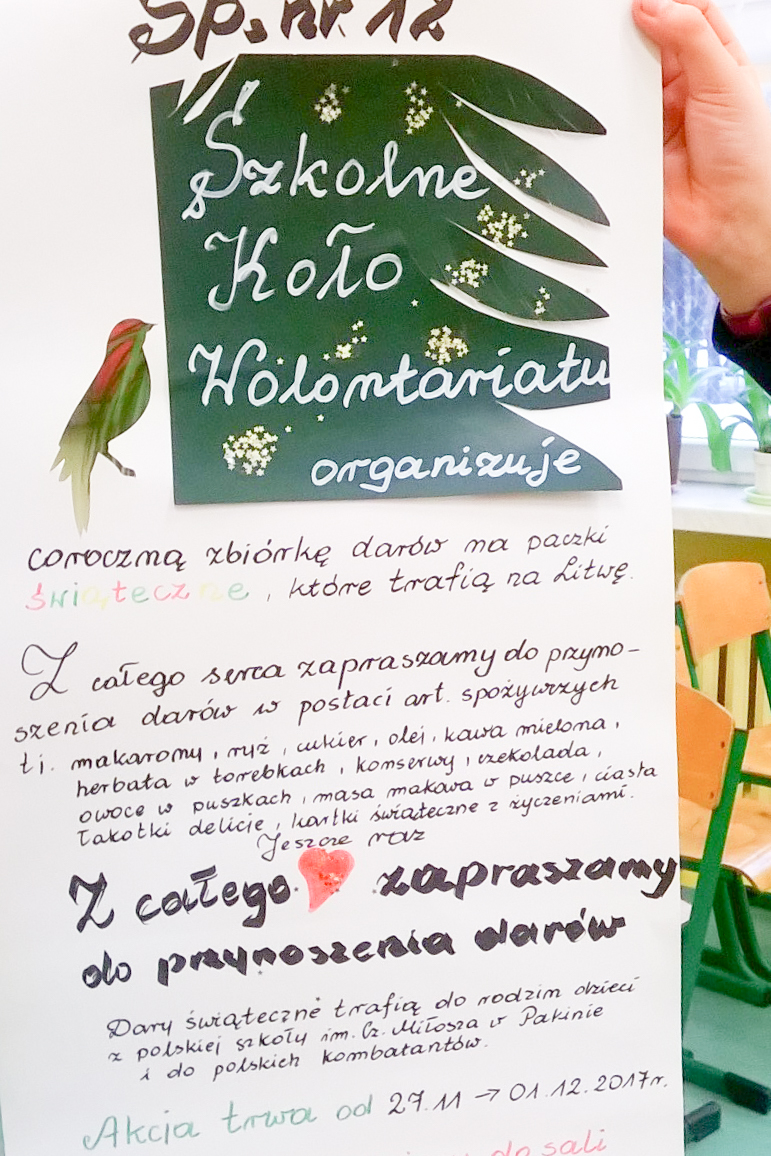 Sp. nr 12
Szkolne
Koło
Wolontariatu
organizuje
coroczną zbiórkę darów na paczki
świąteczne, które trafią na Litwę.
Z całego serca zapraszamy do przyno-
szenia darów w postaci art. spożywczych
tj. makarony, ryż, cukier, olej, kawa mielona,
herbata w torebkach, konserwy, czekolada,
owoce w puszkach, masa makowa w puszce, ciasta
łakotki delicje, kartki świąteczne z życzeniami.
Jeszcze raz
Z całego zapraszamy
do przynoszenia darów
Dary świąteczne trafią do rodzin dzieci
z polskiej szkoły im. Cz. Miłosza w Pakinie
i do polskich kombatantów.
Akcja trwa od 27.11 → 01.12.2017r.
do sali